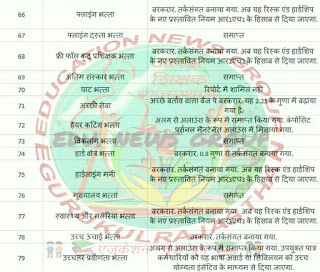 66 फ्लाइंग भत्ता बरकरार. तर्कसंगत बनाया गया. अब यह रिस्क एंड हार्डशिप
के नए प्रस्तावित नियम आर1एच1 के हिसाब से दिया जाएगा.
67 फ्लाइंग दस्ता भत्ता समाप्त
68 फ्री फॉल जंप प्रशिक्षक भत्ता बरकरार. तर्कसंगत बनाया गया. अब यह रिस्क एंड हार्डशिप
के नए प्रस्तावित नियम के हिसाब से दिया जाएगा.
69 अंतिम संस्कार भत्ता समाप्त
70 घाट भत्ता रिपोर्ट में शामिल नहीं
71 अच्छी सेवा अच्छे बर्ताव वाला बैज पे बरकरार. यह 2.25 के गुणा में बढ़ाया
गया है.
72 हेयर कटिंग भत्ता अलग से अलाउंस के रूप में समाप्त किया गया. कंपोसिट
पर्सनल मैनटेनेंस अलाउंस में मिलाया गया.
73 विकलांग भत्ता समाप्त
74 हार्ड क्षेत्र भत्ता बरकरार. 0.8 गुणा से तर्कसंगत बनाया गया.
75 हार्डलाइंग मनी बरकरार. तर्कसंगत बनाया गया. अब यह रिस्क एंड हार्डशिप
के नए प्रस्तावित नियम के हिसाब से दिया जाएगा.
76 मुख्यालय भत्ता समाप्त
77 स्वास्थ्य और मलेरिया भत्ता बरकरार. तर्कसंगत बनाया गया. अब यह रिस्क एंड हार्डशिप
के नए प्रस्तावित नियम आर3एच3 के हिसाब से दिया जाएगा.
78 उच्च ऊंचाई भत्ता बरकरार. तर्कसंगत बनाया गया.
79 उच्चतर प्रवीणता भत्ता अलग से अलाउंस के रूप में समाप्त किया गया. उपयुक्त पात्र
कर्मचारियों को यह भाषा अवार्ड या सिविलियन को उच्च
योग्यता इंसेंटिव के माध्यम से दिया जाएगा.
EDUCATION NEWS GROUP
EDU NEWS GROUP
GURUKUL